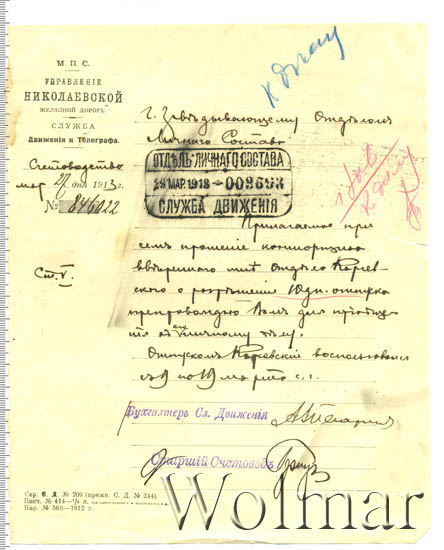 к делу
М. П. С.
УПРАВЛЕНІЕ
НИКОЛАЕВСКОЙ
ЖЕЛѢЗНОЙ ДОРОГИ
СЛУЖБА
Движенія и Телеграфа.
Счетоводство
мар 27 дня 1913 г.
№ 846922
Ст. V.
Г. Завѣдывающему Отдѣломъ
Личнаго Состава
ОТДѢЛЪ ЛИЧНАГО СОСТАВА
29 МАР. 1913
СЛУЖБА ДВИЖЕНІЯ
к дѣлу
Прилагаемое при
семъ прошеніе конторщика
ввѣреннаго мнѣ отдѣла
о разрѣшеніи 10 дн. отпуска
препровождаю Вамъ для пріобще
нія къ его личному дѣлу.
Отпускомъ воспользовался
съ 9 по 19 марта с. г.
Бухгалтеръ Сл. Движенія
Старшій Счетоводъ
Сер. С. Д. № 209 (прежн. С. Д. № 244).
Нар. № 568—1912 г.
Wolmar